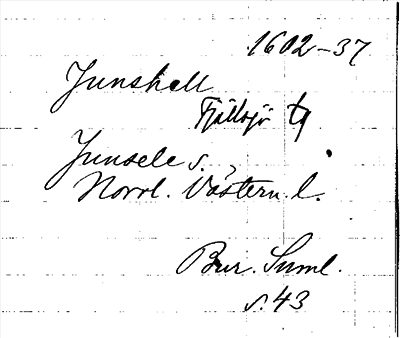 1602-37
Junshell
Fjällsjö tg
Junsele s.,
Norrl. Västern. l.
Bur. Suml.
s. 43